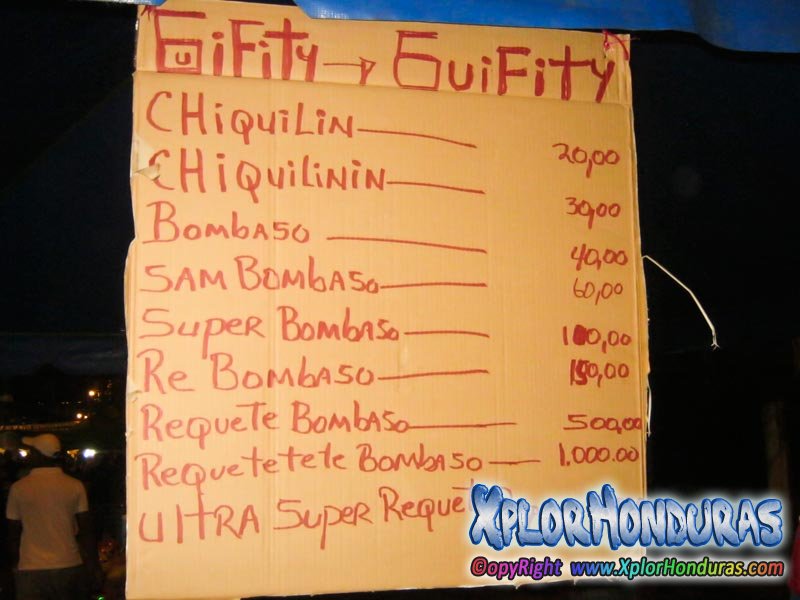 GuiFity → GuiFity
CHiquiLin 20,00
CHiquiLinin 30,00
Bombaso 40,00
SAM Bombaso 60,00
Super Bombaso 100,00
Re Bombaso 150,00
Requete Bombaso 500,00
Requetetete Bombaso 1.000.00
ultRA Super
XplorHonduras
©opyRight www.XplorHonduras.com